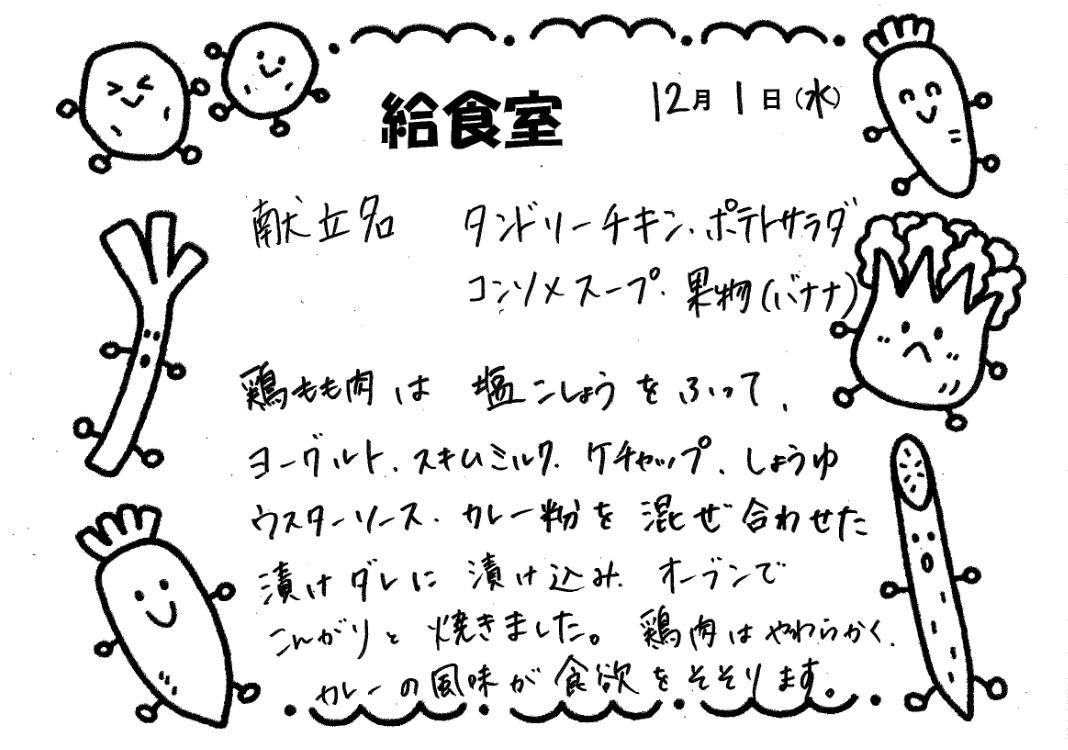 給食室
12月1日(水)
献立名 タンドリーチキン、ポテトサラダ
コンソメスープ、果物(バナナ)
鶏もも肉は 塩こしょうをふって、
ヨーグルト、スキムミルク、ケチャップ、しょうゆ
ウスターソース、カレー粉を混ぜ合わせた
漬けダレに漬け込み、オーブンで
こんがりと焼きました。鶏肉はやわらかく、
カレーの風味が食欲をそそります。